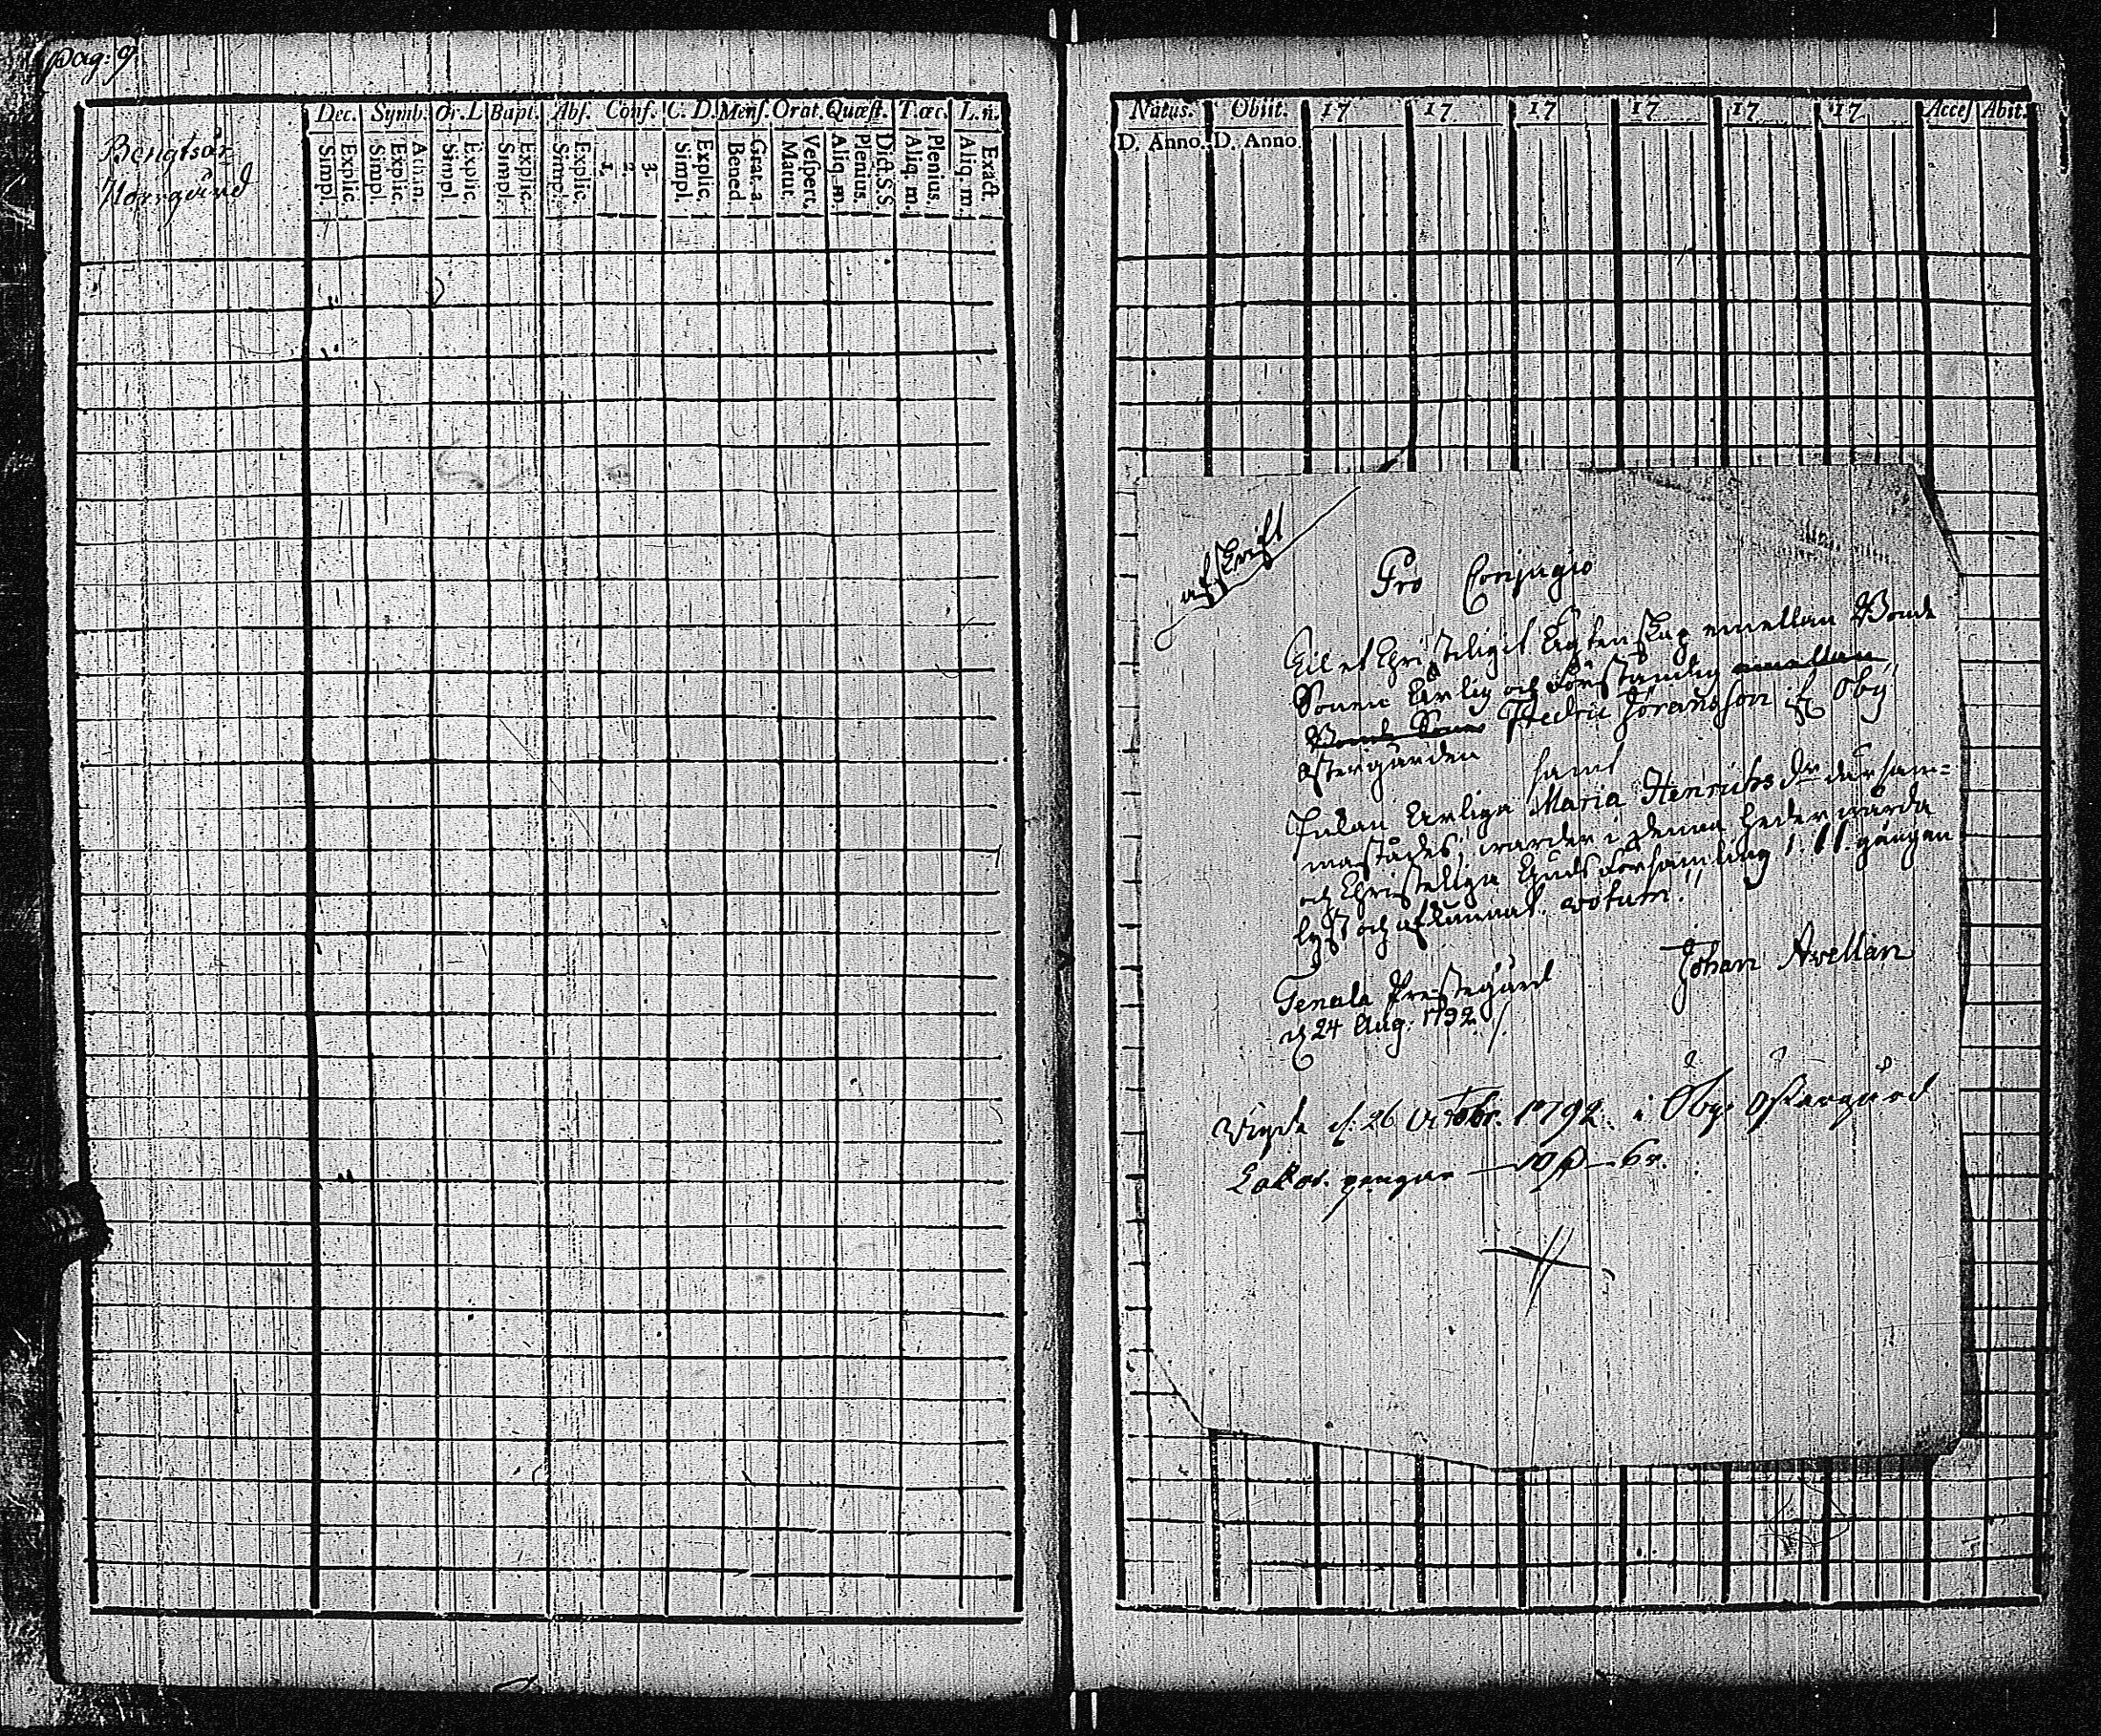 Pag: 9
Bengtsår
Norrgård
Dec. Symb. Or. L Bapt. Abs. Conf. C. D. Mens. Orat. Quæst. T. œc. L. n.
Simpl. Explic. Simpl. Explic. Athan. Simpl. Explic. Simpl. Explic. Simpl. Explic. 1. 2. 3. Simpl. Explic. Bened. Grat. a. Matut. Vespert. Aliq. m. Plenius. Dict. S.S. Aliq. m. Plenius. Aliq. m. Exact.
Natus. Obiit. 17 17 17 17 17 17 Acces Abit.
D. Anno. D. Anno
afskrift
Pro Conjugio
Til et Christeligit Ægtenskap emellan Bonde
Sonen Ärlig och Förståndig emellan
Bonde Sonen Fredric Jöransson if. Öby
Östergården samt
Pigan Ärliga Maria Henricsdr dersam=
mastädes, warder i denna hederwärda
och Christeliga Guds Församling 1. II. gången
lyst och afkunnat. votum!!
Johan Avellan
Tenala Prestegård
d. 24 Aug: 1792 /.
Vigde d. 26 Octobr. 1792. i Öby Östergård
Lakas. pengar — 10 ß — 6 r.